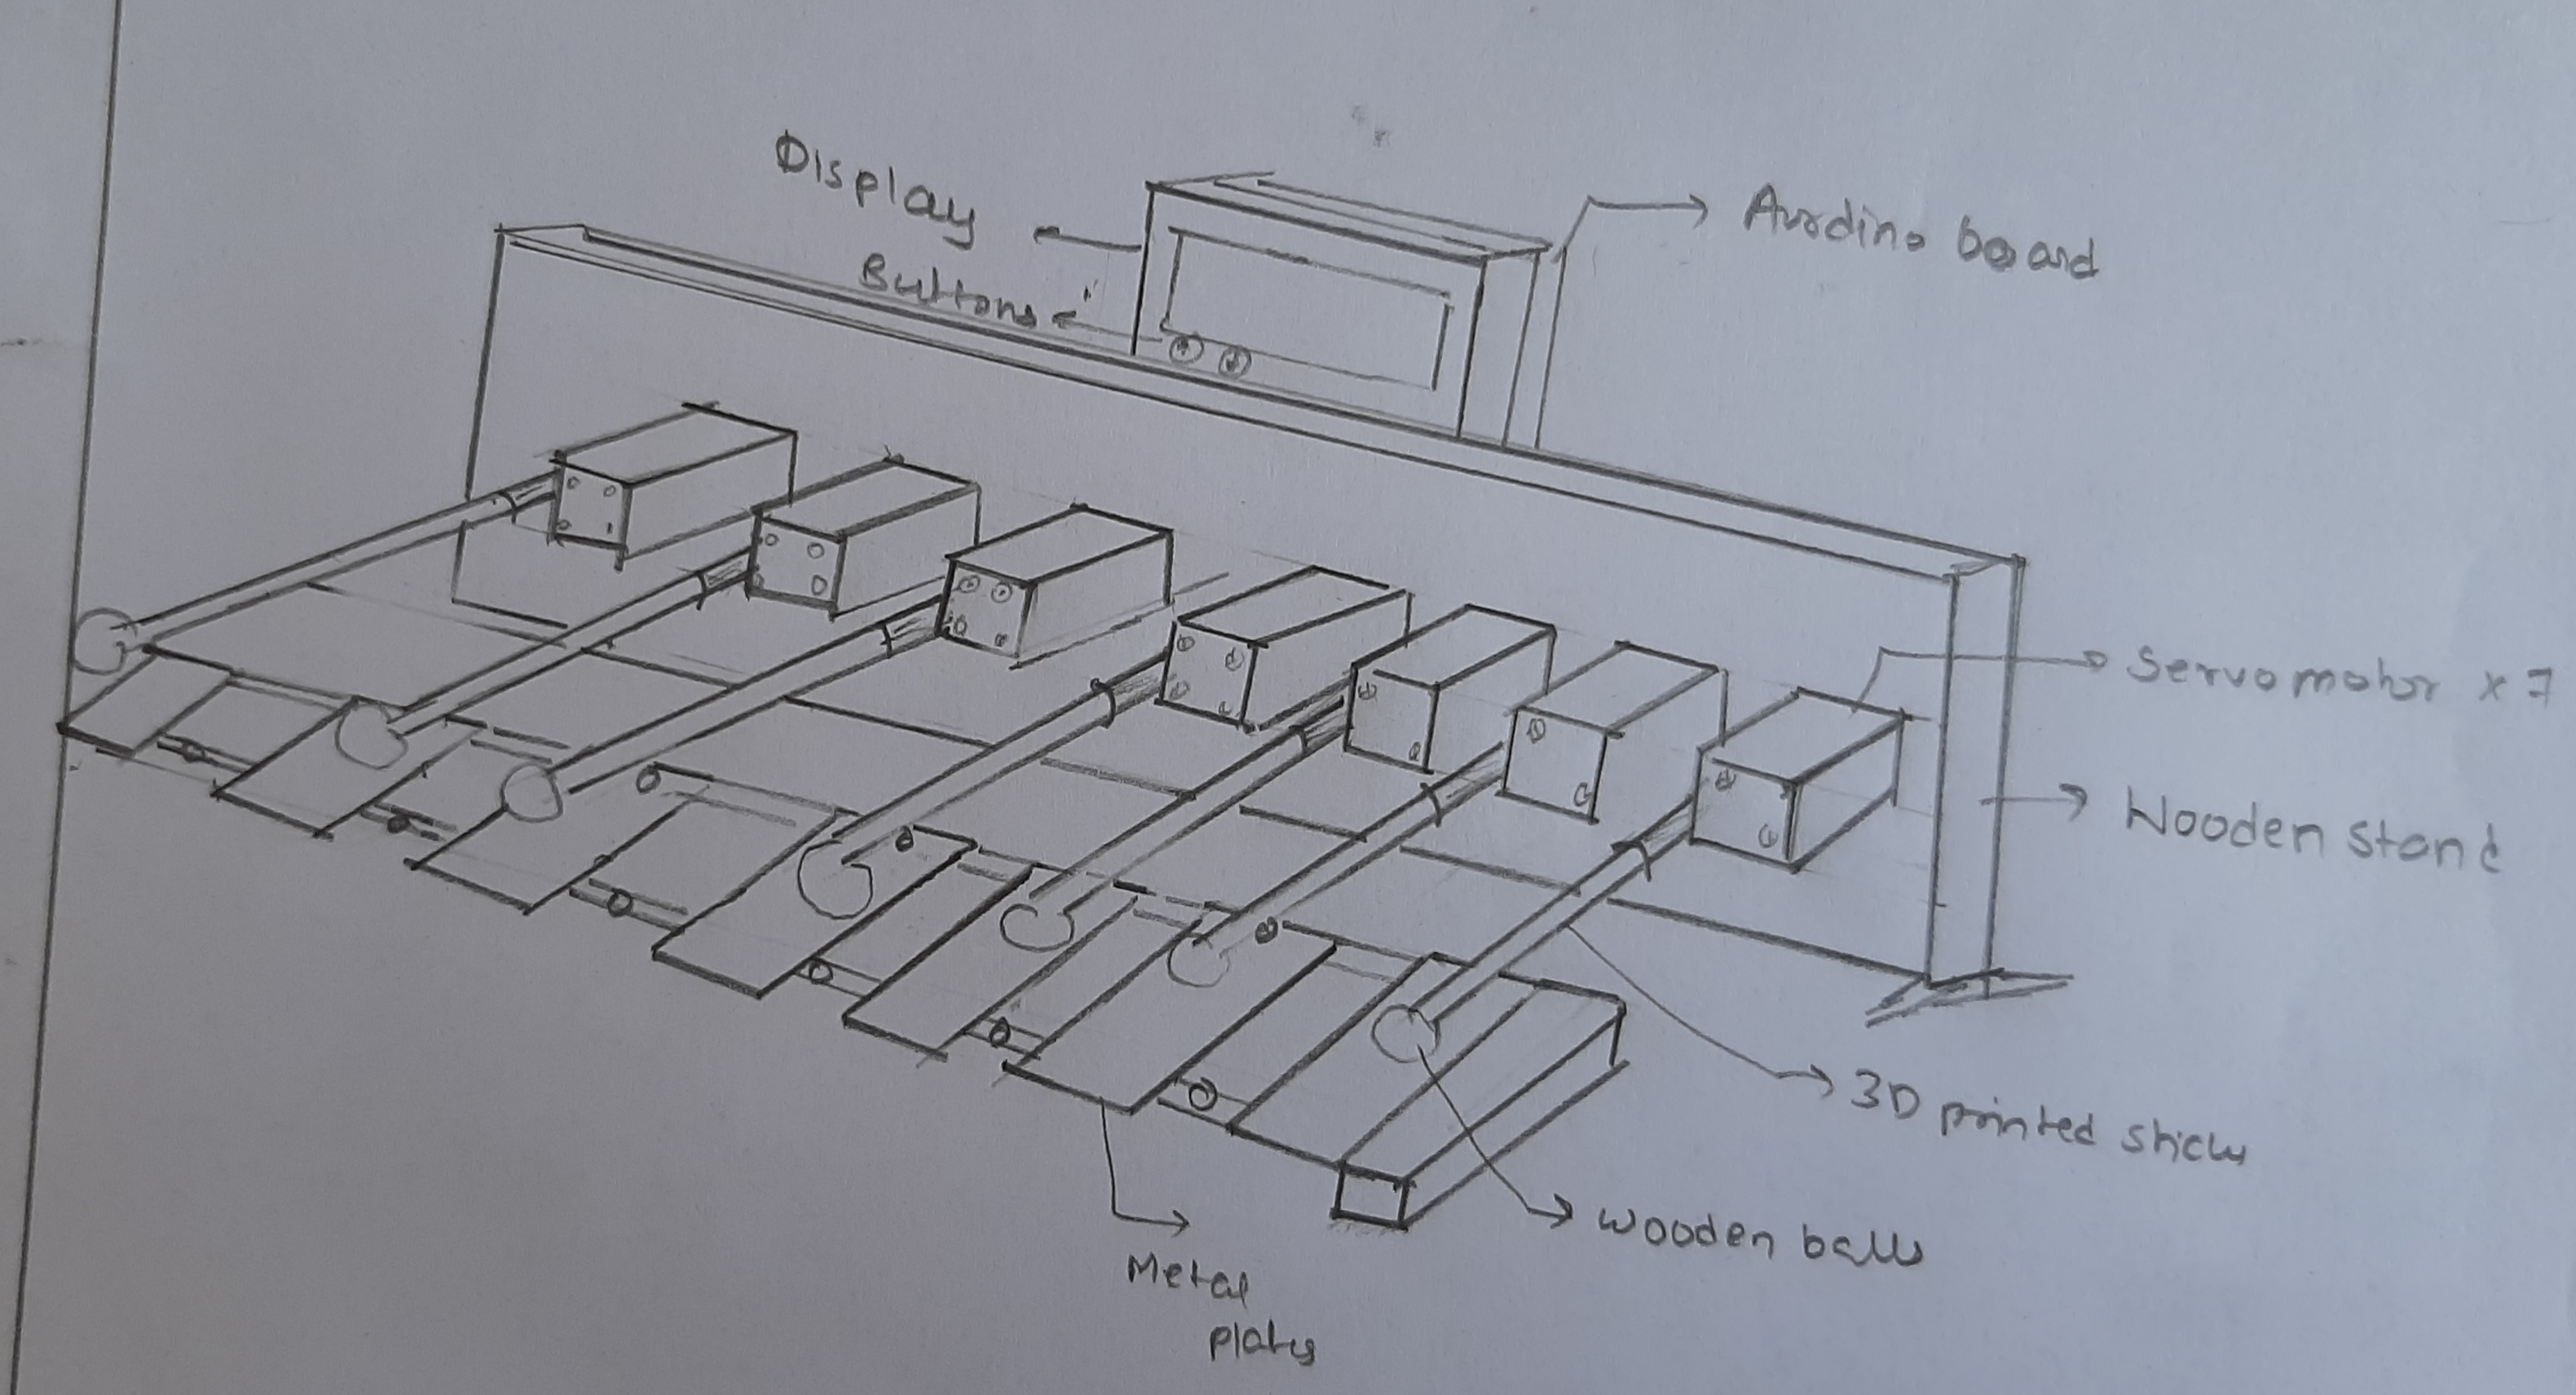 Display
Buttons
Aurdino board
Servomotor x 7
Wooden stand
3D printed sticks
wooden balls
Metal
plates